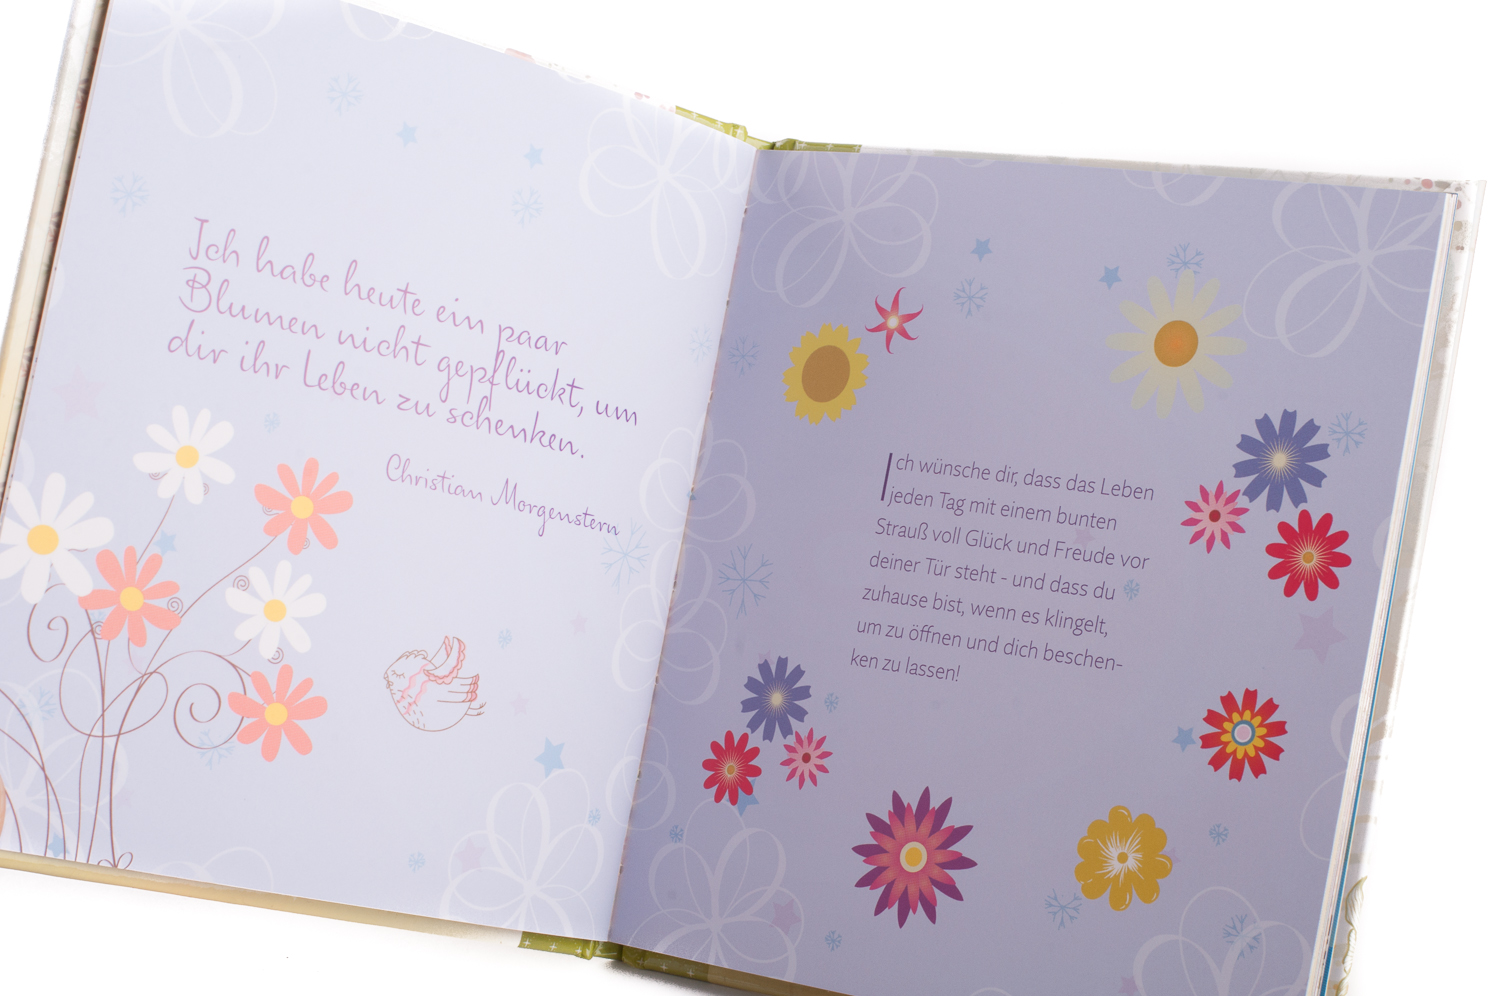 Ich habe heute ein paar
Blumen nicht gepflückt, um
dir ihr Leben zu schenken.
Christian Morgenstern
Ich wünsche dir, dass das Leben
jeden Tag mit einem bunten
Strauß voll Glück und Freude vor
deiner Tür steht - und dass du
zuhause bist, wenn es klingelt,
um zu öffnen und dich beschen-
ken zu lassen!